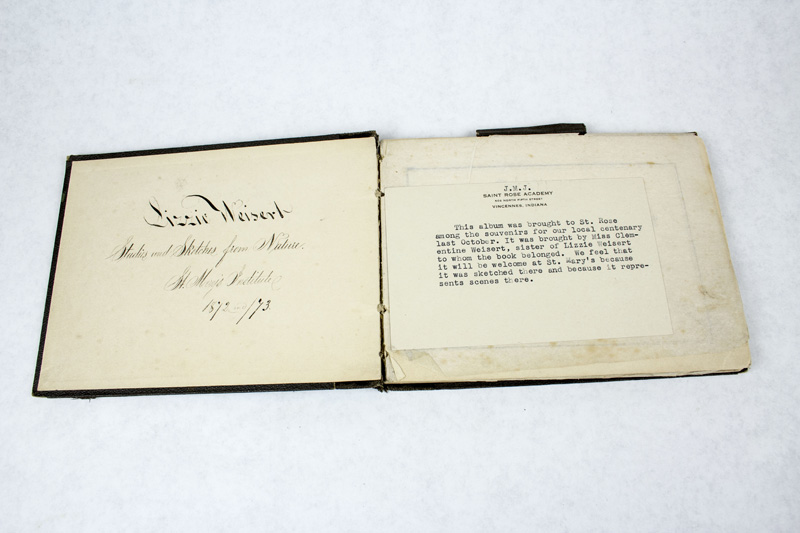 Lizzie Weisert
Studies and Sketches from Nature.
St. Mary's Institute
1872–/73
J.M.J.
SAINT ROSE ACADEMY
NORTH FIFTH STREET
VINCENNES, INDIANA
This album was brought to St. Rose
among the souvenirs for our local centenary
last October. It was brought by Miss Clem-
entine Weisert, sister of Lizzie Weisert
to whom the book belonged. We feel that
it will be welcome at St. Mary's because
it was sketched there and because it repre-
sents scenes there.